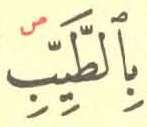 ص
بِٱلطَّيِّبِ